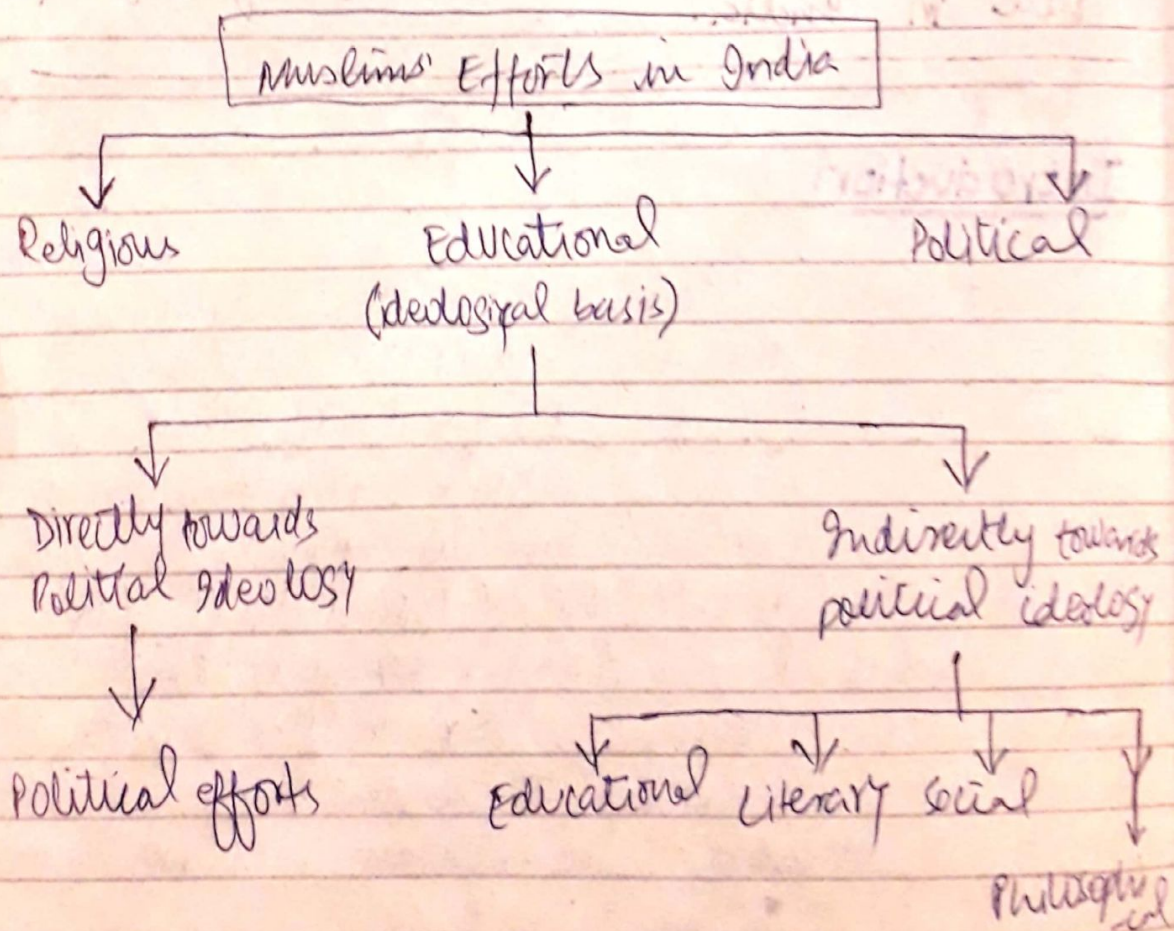 Muslims' Efforts in India
Religious
Educational
(ideological basis)
Political
Directly towards
Political Ideology
Indirectly towards
political ideology
Political efforts
Educational Literary Social
Philosophi
-cal